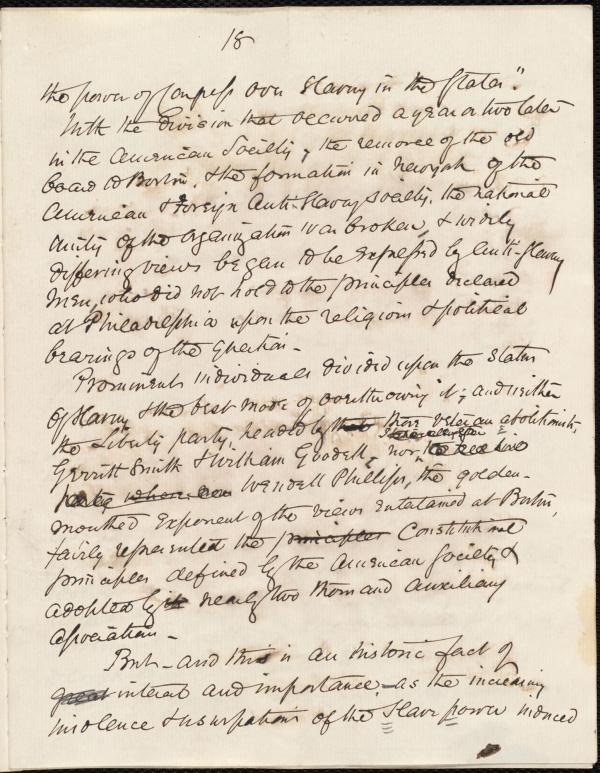 18
the power of Congress over Slavery in the States."
With the division that occurred a year or two later
in the American Society, the removal of the old
board to Boston, & the formation in New york of the
American & Foreign Anti-Slavery Society, the national
unity of the organization was broken, & widely
differing views began to be expressed by anti-slavery
men, who did not hold to the principles declared
at Philadelphia upon the religious & political
bearings of the Question -
Prominent individuals divided upon the status
of slavery & the best mode of overthrowing it; and neither
the Liberty party, headed by those veteran abolitionists
Gerrit Smith & William Goodell, nor
party where Wendell Phillips, the golden-
mouthed exponent of the views entertained at Boston,
fairly represented the principles Constitutional
principles defined by the American Society &
adopted by its nearly two thousand auxiliary
associations -
But - and this is an historic fact of
great interest and importance - as the increasing
insolence & usurpations of the Slave power induced